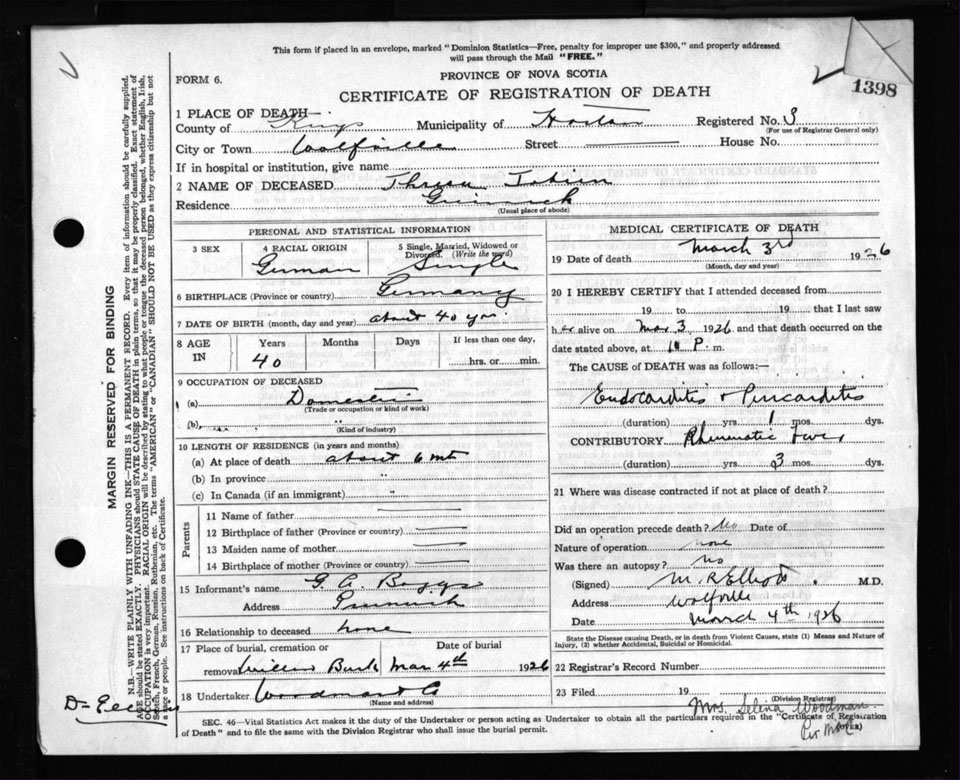 This form if placed in an envelope, marked "Dominion Statistics—Free, penalty for improper use $300," and properly addressed
will pass through the Mail "FREE."
FORM 6.
PROVINCE OF NOVA SCOTIA
1398
CERTIFICATE OF REGISTRATION OF DEATH
1 PLACE OF DEATH—
County of Kings Municipality of Horton Registered No. 3
(For use of Registrar General only)
City or Town Wolfville Street House No.
If in hospital or institution, give name
2 NAME OF DECEASED
Residence
(Usual place of abode)
PERSONAL AND STATISTICAL INFORMATION
3 SEX
4 RACIAL ORIGIN
German
5 Single, Married, Widowed or
Divorced. (Write the word)
Single
6 BIRTHPLACE (Province or country) Germany
7 DATE OF BIRTH (month, day and year) about 40 yrs.
8 AGE
IN
Years Months Days If less than one day,
40
hrs. or min.
9 OCCUPATION OF DECEASED
(a) Domestic
(Trade or occupation or kind of work)
(b) "
(Kind of industry)
10 LENGTH OF RESIDENCE (in years and months)
(a) At place of death about 6 mts
(b) In province "
(c) In Canada (if an immigrant) "
Parents
11 Name of father
12 Birthplace of father (Province or country)
13 Maiden name of mother
14 Birthplace of mother (Province or Country)
15 Informant's name G. A. Boggs
Address
16 Relationship to deceased none
17 Place of burial, cremation or Date of burial
removal Willow Bank Mar 4th 1926
18 Undertaker
(Name and address)
MEDICAL CERTIFICATE OF DEATH
19 Date of death March 3rd 1926
(Month, day and year)
20 I HEREBY CERTIFY that I attended deceased from
19 to 19 that I last saw
her alive on Mar 3 1926 and that death occurred on
date stated above, at 10 P. m.
The CAUSE of DEATH was as follows:—
Endocarditis & Pericarditis
(duration) yrs. 1 mos. dys.
CONTRIBUTORY Rheumatic Fever
(duration) yrs. 3 mos. dys.
21 Where was disease contracted if not at place of death?
Did an operation precede death? No Date of
Nature of operation none
Was there an autopsy? No
(Signed) M. R Elliott M.D.
Address Wolfville
Date March 4th 1926
State the Disease causing Death, or in death from Violent Causes, state (1) Means and Nature of
Injury, (2) whether Accidental, Suicidal or Homicidal.
22 Registrar's Record Number
23 Filed 19
(Division Registrar)
Mrs. Selina Woodman
SEC. 46—Vital Statistics Act makes it the duty of the Undertaker or person acting as Undertaker to obtain all the particulars required in the "Certificate of Registration
of Death" and to file the same with the Division Registrar who shall issue the burial permit.
MARGIN RESERVED FOR BINDING
N.B.—WRITE PLAINLY WITH UNFADING INK—THIS IS A PERMANENT RECORD. Every item of information should be carefully supplied.
AGE should be stated EXACTLY. PHYSICIANS should STATE CAUSE OF DEATH in plain terms, so that it may be properly classified. Exact statement of
OCCUPATION is very important. RACIAL ORIGIN will be described by stating to what people or tongue the deceased person belonged, whether English, Irish,
Scotch, French, German, Russian, Ruthenian, etc. The terms "AMERICAN" or "CANADIAN" SHOULD NOT BE USED as they express citizenship but not
a race or people. See instructions on back of Certificate.